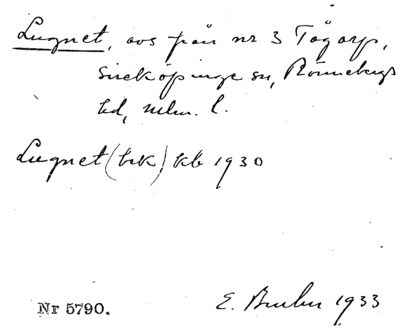 Lugnet, avs från nr 3 Tågarp,
Sireköpinge sn, Rönnebergs
hd, Mlm. l.
Lugnet (hk) kb 1930
Nr 5790.
E. 1933